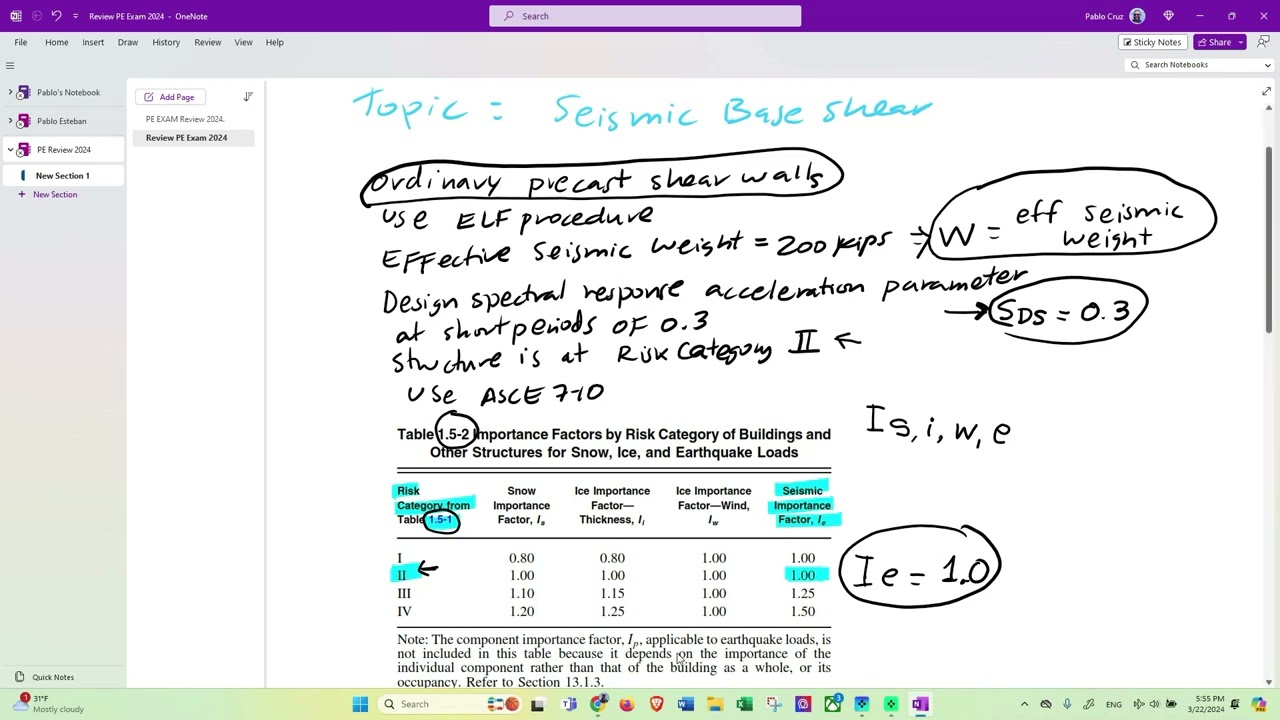 Review PE Exam 2024 - OneNote
Search
Pablo Cruz
File Home Insert Draw History Review View Help
Sticky Notes
Share
Search Notebooks
Pablo's Notebook
Pablo Esteban
PE Review 2024
New Section 1
New Section
Add Page
PE EXAM Review 2024.
Review PE Exam 2024
Topic = Seismic Base shear
Ordinary precast shear walls
Use ELF procedure
Effective Seismic weight = 200 kips
W = eff seismic
weight
Design spectral response acceleration parameter
at short periods of 0.3
SDS = 0.3
Structure is at Risk Category II
Use ASCE 7-10
Table 1.5-2 Importance Factors by Risk Category of Buildings and
Other Structures for Snow, Ice, and Earthquake Loads
I s, i, w, e
Risk Snow Ice Importance Ice Importance Seismic
Category from Importance Factor— Factor—Wind, Importance
Table 1.5-1 Factor, Is Thickness, Ii Iw Factor, Ie
I 0.80 0.80 1.00 1.00
II 1.00 1.00 1.00 1.00
III 1.10 1.15 1.00 1.25
IV 1.20 1.25 1.00 1.50
Ie = 1.0
Note: The component importance factor, Ip, applicable to earthquake loads, is
not included in this table because it depends on the importance of the
individual component rather than that of the building as a whole, or its
occupancy. Refer to Section 13.1.3.
Quick Notes
31°F
Mostly cloudy
Search
3
ENG
5:55 PM
3/22/2024